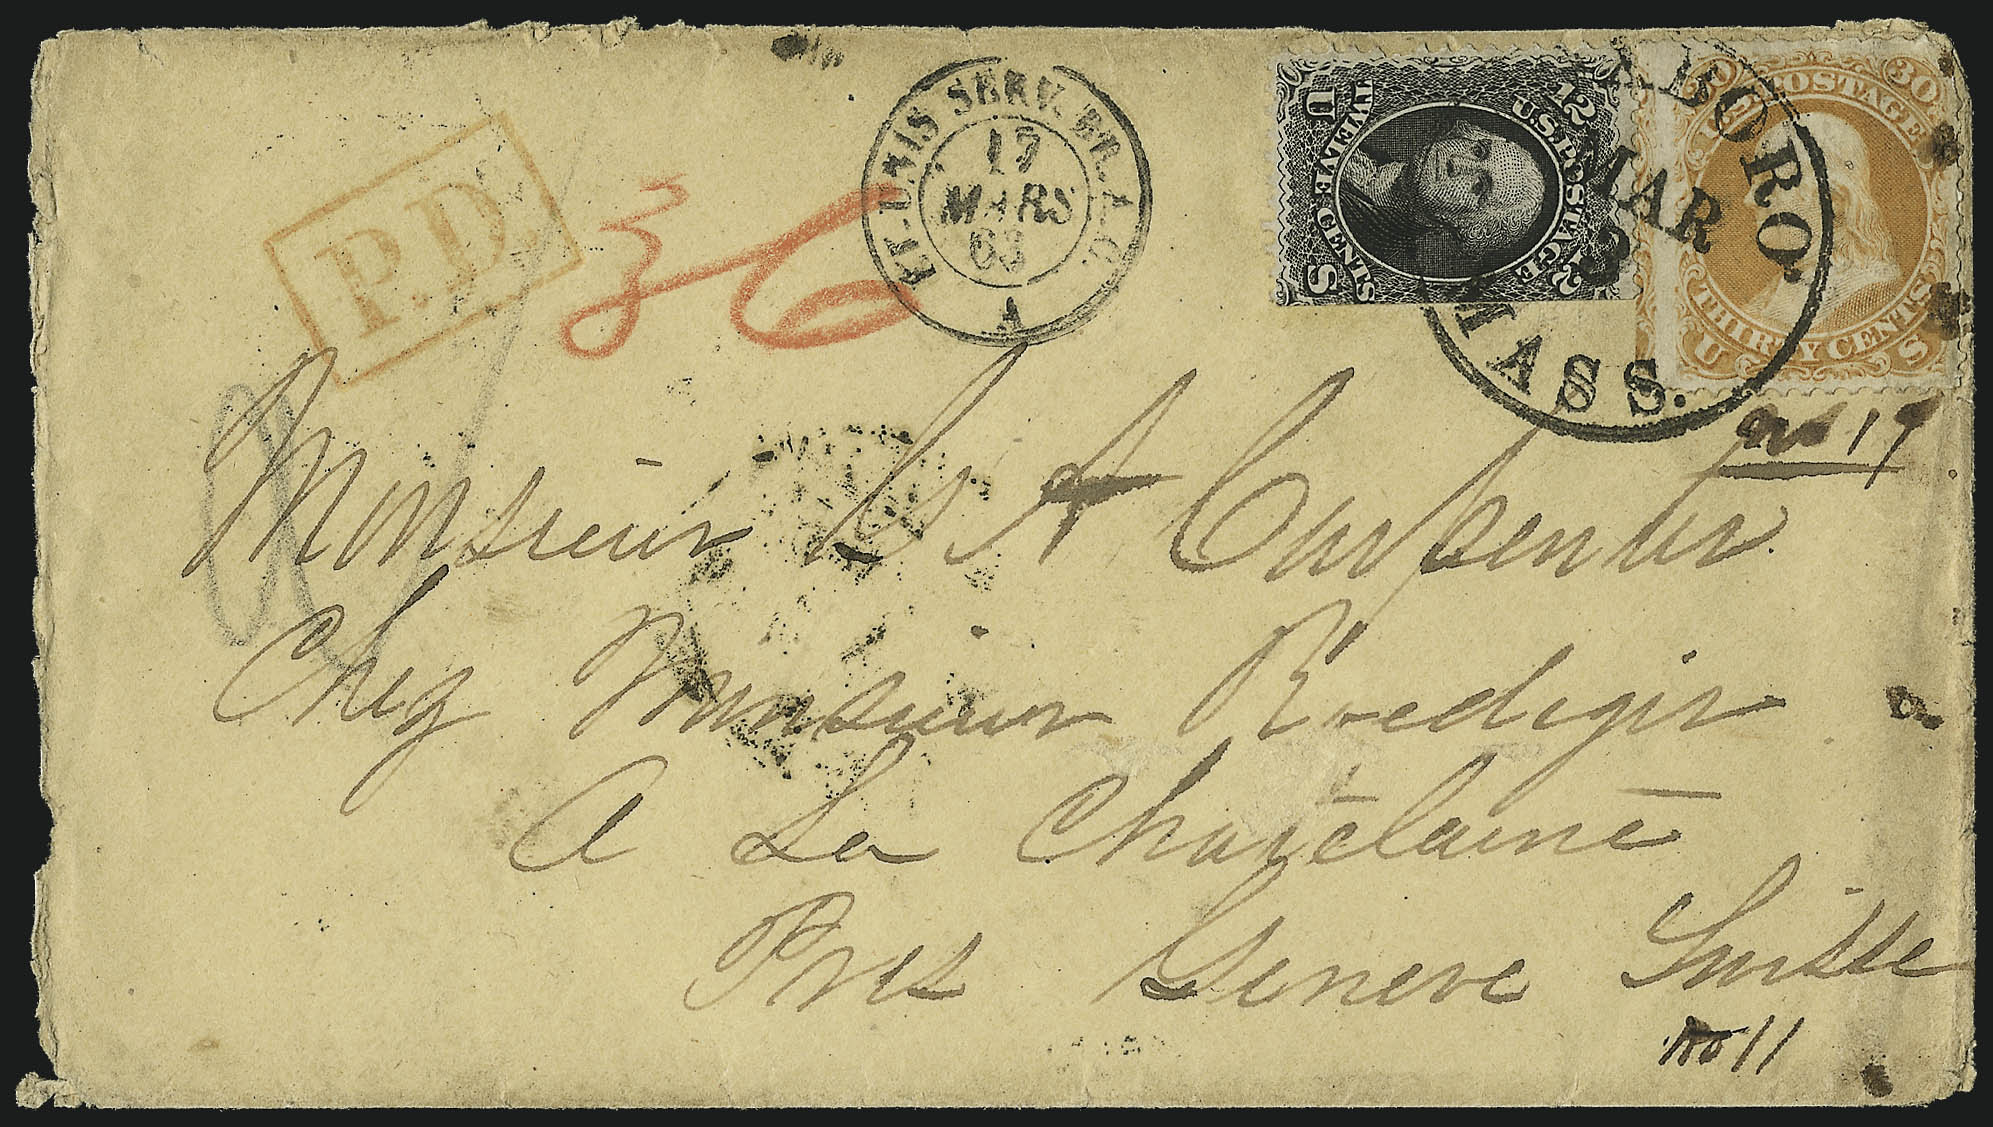 P.D.
36
ET-UNIS SERV. BR. A.C.
17
MARS
63
A
12 U.S. POSTAGE 12
TWELVE CENTS
U S
30 U.S. POSTAGE 30
THIRTY CENTS
U S
BORO.
MAR
3
MASS.
no 19
Monsieur L A Carpenter
Chez Monsieur Roediger
A La Chatelaine
Pres Geneve Suisse
no 11